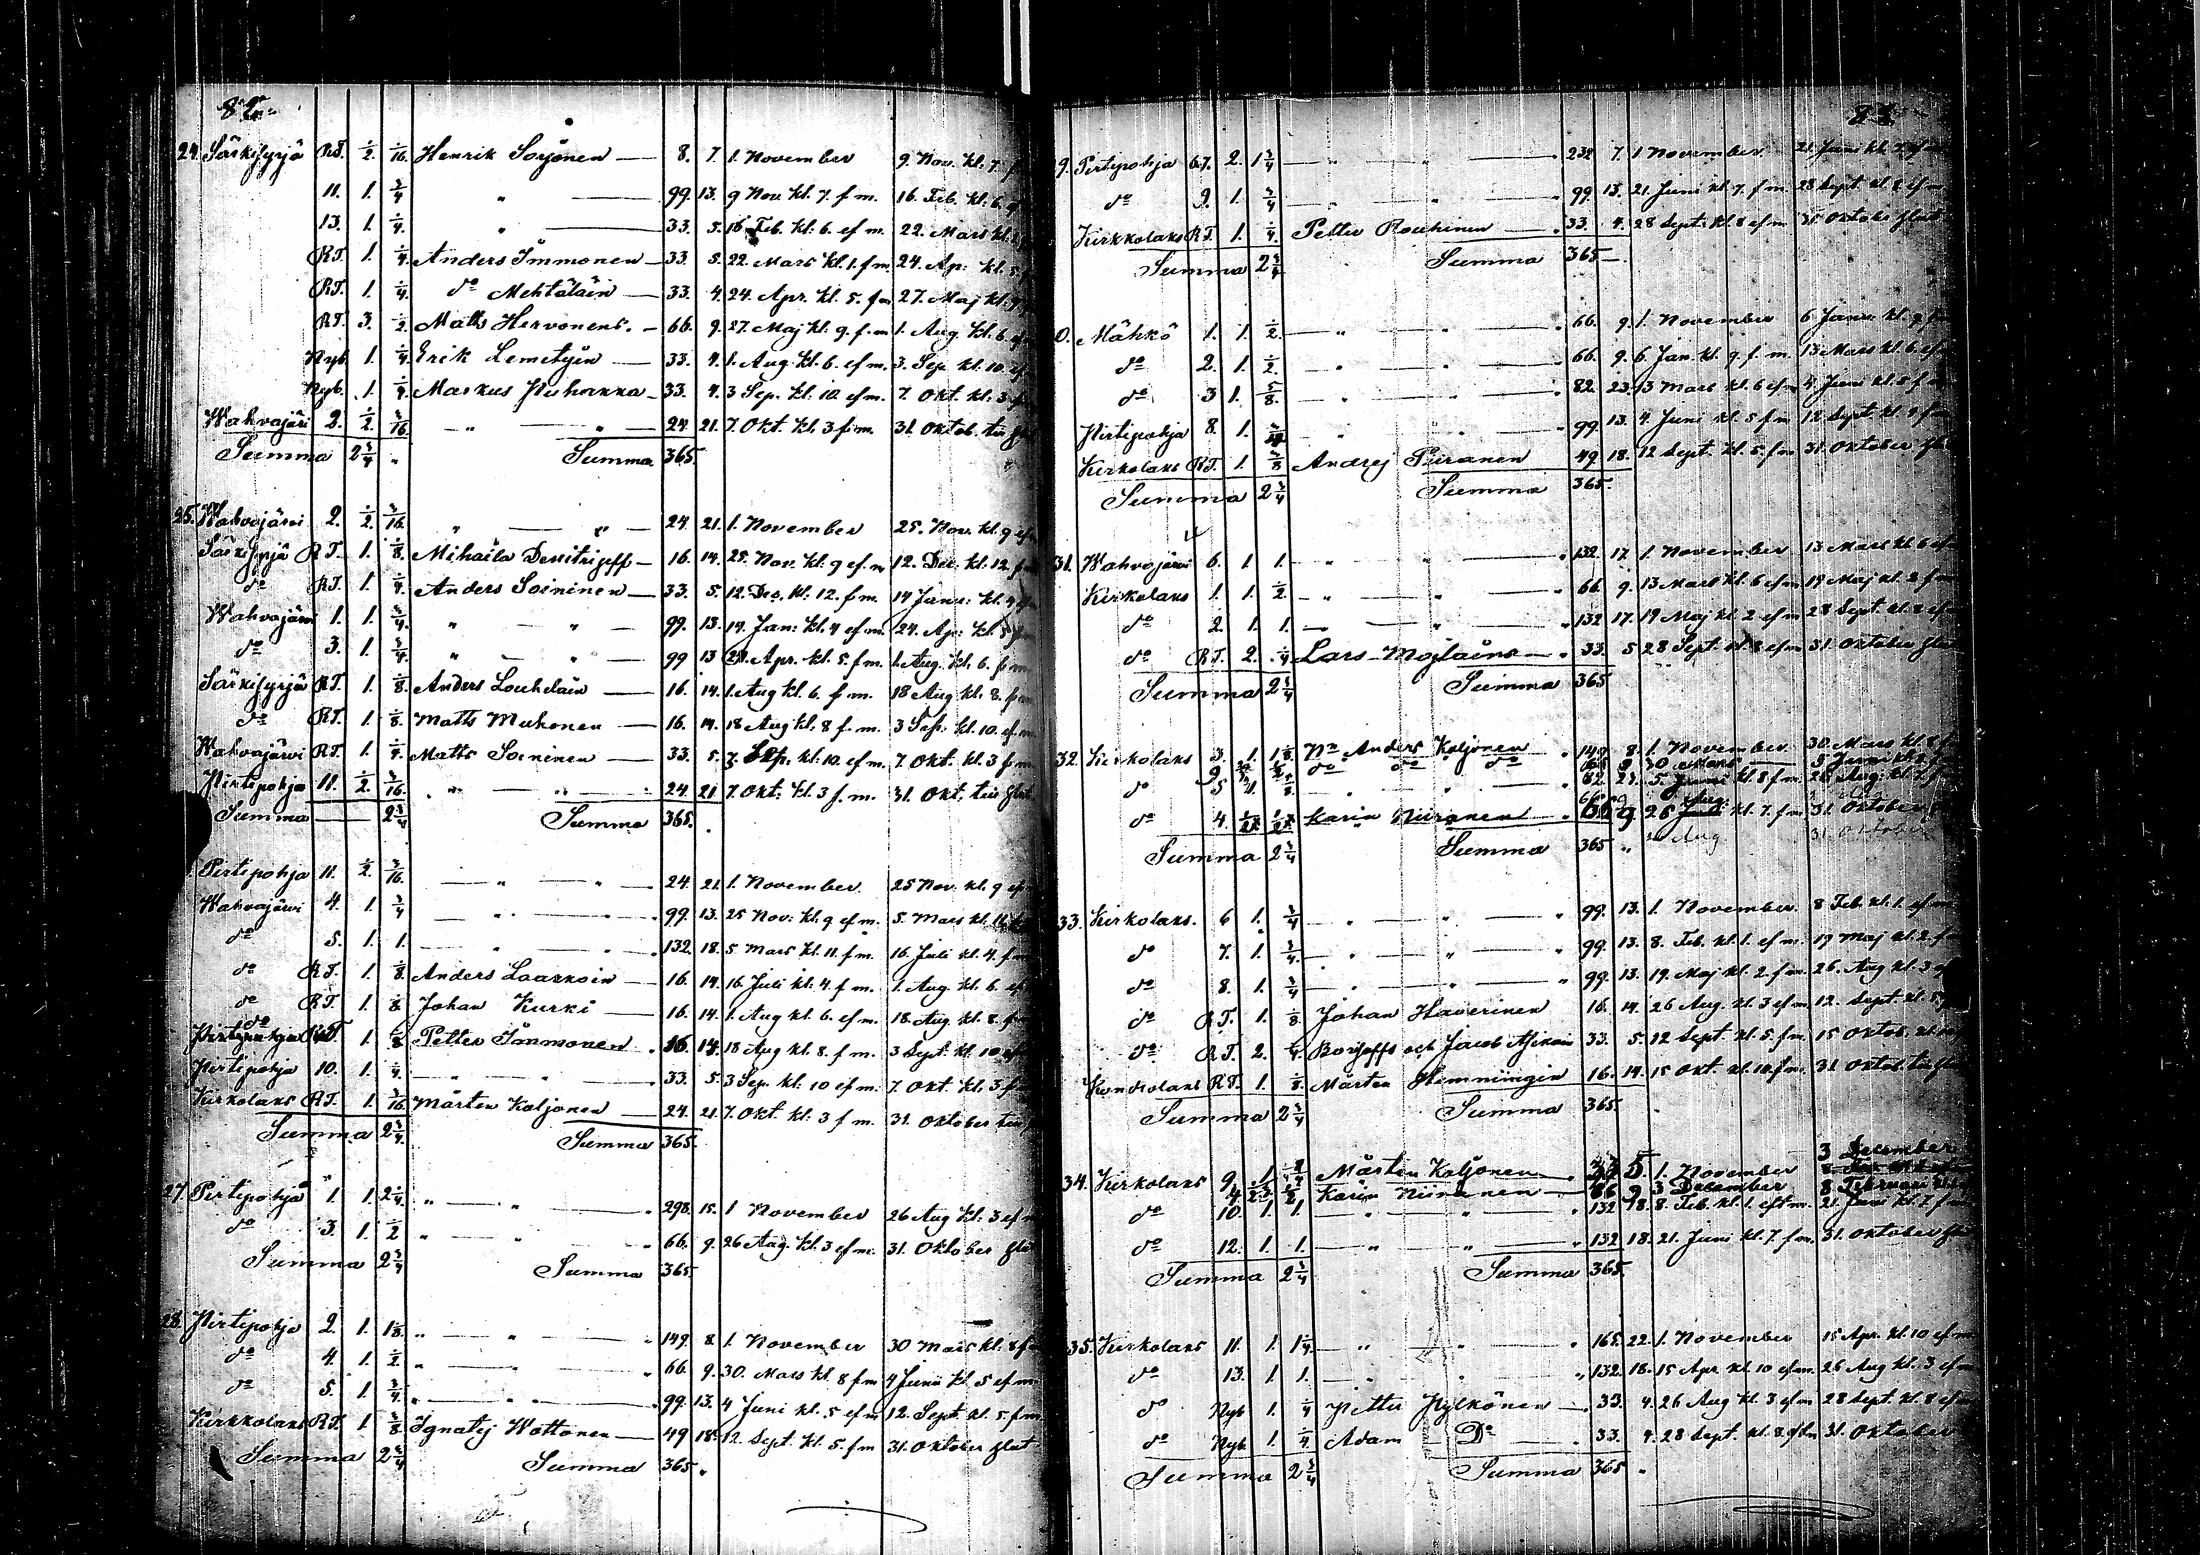 82.
24. Särkisyrjä RT. 1/2. 3/16. Henrik Sorjonen — 8. 7. 1. November 9. Nov. kl. 7. f
11. 1. 3/4 " — 99. 13. 9 Nov. kl. 7. f m. 16. Feb. kl. 6.
13. 1. 1/4 " — 33. 5. 16 Feb. kl. 6. ef m. 22. Mars kl.
RT. 1. 1/4. Anders Immonen — 33. 5. 22. Mars kl. 1. f m. 24. Ap: kl. 5.
RT. 1. 1/4. do Mehtäläin — 33. 4. 24. Apr. kl. 5. fm 27. Maj kl. 9
RT. 3. 1/2. Matts Hervonens. — 66. 9. 27. Maj kl. 9. f m 1. Aug. kl. 6.
Nyb. 1. 1/4. Erik Lemetyin — 33. 4. 1. Aug. kl. 6. ef m. 3. Sep. kl. 10. ef
Nyb. 1. 1/4 Markus — 33. 4. 3 Sep. kl. 10 ef m. 7. Okt. kl. 3
Wahvajäri 2. 1/2. 3/16. — " — " — 24 21. 7. Okt. kl. 3 f m. 31. Oktob. till slut
Summa 2 3/4 " Summa. 365.
25. Wahvajärvi 2. 1/2. 3/16. " — " — 24. 21. 1. November 25. Nov. kl. 9 ef
Särkisyrjä RT. 1. 1/8. Mihaila — 16. 14. 25. Nov. kl. 9 ef m 12. Dec. kl. 12. f
do RT. 1. 1/4. Anders Soininen — 33. 5. 12. Dec. kl. 12. f m. 14 Janu: kl. 4
Wahvajärvi 1. 1. 3/4. " — " — 99. 13. 14. Jan: kl. 4 ef m. 24. Ap: kl. 5
do 3. 1. 3/4. " — " — 99 13 24. Apr. kl. 5. f m. 1. Aug. kl. 6. f m
Särkisyrjä RT. 1. 1/8. Anders Louhelain — 16. 14. 1. Aug kl. 6. f m. 18 Aug kl. 8. f m
do RT. 1. 1/8. Matts Muhonen — 16. 14. 18 Aug kl. 8 f. m. 3 Sep. kl. 10. ef m
Wahvajärvi RT. 1. 1/4. Matts Soininen — 33. 5. 3. Sep. kl. 10. ef m. 7. Okt. kl. 3 f m
Pirtipohja 11. 1/2. 3/16. " — " — 24 21 7. Okt: kl. 3 f. m. 31. Okt. till slut
Summa — 2 3/4 Summa 365.
Pirtipohja 11. 1/2. 3/16. — " — " — 24. 21. 1. November. 25 Nov. kl. 9 ef
Wahvajärvi 4. 1. 3/4 — " — " — 99. 13. 25 Nov: kl. 9 ef m. 5. Mars kl. 11.
do 5. 1. 1. — " — " — 132. 18. 5 Mars kl. 11. f m. 16. Juli kl. 4. f m
do RT. 1. 1/8. Anders Laarkoin — 16. 14. 16. Juli kl. 4. f m. 1. Aug. kl. 6. ef
do RT. 1. 1/8 Johan Kurki — 16. 14. 1. Aug kl. 6. ef m. 18. Aug kl. 8. f m
do RT. 1. 1/8 Petter Immonen — 16. 14. 18 Aug kl. 8. f m. 3 Sept. kl. 10 ef
Pirtipohja 10. 1. 1/4. — " — " — 33. 5. 3 Sep. kl: 10 ef m. 7. Okt. kl. 3 f m
Kirkolaks RT. 1. 3/16. Mårten Koljonen — 24. 21. 7. Okt. kl. 3 f m. 31. Oktober till
Summa 2 3/4. Summa 365.
27. Pirtipohja 1. 1. 2 1/4. " — " — 298. 15. 1 November 26 Aug kl. 3 ef m
do 3. 1. 1/2 " " 66. 9. 26 Aug. kl. 3 ef m. 31. Oktober slut
Summa 2 3/4 Summa 365.
28. Pirtipohja 2. 1. 1 1/8. " — " — 149. 8. 1. November 30 Mars kl. 8 f
do 4. 1. 1/2. " — 66. 9. 30. Mars kl. 8 f m 4 Junii kl. 5 ef m
do 5. 1. 3/4. " — " — 99. 13. 4 Juni kl. 5 ef m 12. Sept. kl. 5. f m
Kirkkolaks RT. 1. 3/8. Ignatej Wottonen — 49 18. 12. Sept. kl. 5. f m 31. Oktober slut
Summa 2 3/4 Summa 365.
9. Pirtipohja 6.7. 2. 1 3/4 — " — " — 232 7. 1 November. 21. Juni kl. 7. f m
do 9. 1. 3/4 — " — 99. 13. 21. Juni kl. 7. f m. 28 Sept. kl. 8. ef m
Kirkkolaks RT. 1. 1/4. Petter Rouhinen — 33. 4. 28 Sept. kl. 8 ef m 31. Oktober slut
Summa 2 3/4 Summa 365
0. Mähkö 1. 1. 1/2. — " — 66. 9. 1. November 6 Janu: kl. 9 f
do 2. 1. 1/2. — " — 66. 9. 6. Jan. kl. 9. f. m. 13 Mars kl. 6 ef
do 3 1. 5/8. — " — 82. 23. 13 Mars kl. 6 ef m 4. Juni kl. 5 f m
Pirtipohja 8. 1. 3/4 " — 99 13. 4. Juni kl. 5 f m 12. Sept kl. f m
Kirkolaks RT. 1. 3/8 Andrej Piiranen 49 18. 12 Sept. kl. 5. f m 31. Oktober slut
Summa 2 3/4 Summa 365.
31. Wahvajärvi 6. 1 1. — " — " — 132. 17. 1. November 13 Mars kl. 6 ef
Kirkolaks 1. 1. 1/2. — " — 66 9. 13 Mars kl. 6 ef m 19 Maj kl. 2 f m
do 2. 1. 1. — " — 132 17. 19 Maj kl. 2 ef m 28 Sept. kl. 8 ef
do RT. 2. 1/4 Lars Mojlains — 33. 5 28 Sept. kl. 8 ef m 31. Oktober slut
Summa 2 3/4 Summa 365
32. Kirkolaks 3. 1. 1 1/8. No Anders Koljonen 149 8. 1. November 30. Mars kl. 8 f
do do do 66 9 30 Mars 5 Juni kl.
do 5 1. 5/8 " 82. 23. 5 Junii kl. 8 f m. 26 Aug: kl. 7. f
do 4. 1/2 1/2 Karin Niiranen 66 9 26 Aug. kl. 7. f m 31. Oktober
Summa 2 3/4 Summa 365 " Aug 31. Oktober
33. Kirkolaks. 6 1. 3/4 " — " 99. 13. 1. November. 8 Feb. kl. 1. ef m
do 7. 1. 3/4. — " — 99. 13. 8. Feb. kl. 1. ef m. 19 Maj kl. 2. f
do 8. 1. 3/4 — " — 99. 13. 19. Maj kl. 2. f m. 26. Aug kl. 3
do RT. 1. 1/8. Johan Haverinen 16. 14. 26 Aug. kl. 3 ef m. 12. Sept. kl. 5.
do RT. 2. 1/4. och Jacob 33. 5. 12 Sept. kl. 5. f m. 15 Oktob. kl. 10
RT. 1. 1/8. Mårten Hemmingin 16. 14. 15 Okt. kl. 10. f m. 31. Oktob. till slut
Summa 2 3/4 Summa 365.
3 December
34. Kirkolaks 9. 1 1/4 Mårten Koljonen 33 5 1. November
4 1/2 1/2 Karin Niiranen 66 9 3 December 8 Februari
do 10. 1. 1. " " 132 18. 8. Feb. kl. 1. eft m. 21. Juni kl. 7. f m
do 12. 1. 1. — " — " — 132 18. 21. Juni kl. 7. f m. 31. Oktober slut
Summa 2 3/4 Summa 365.
35. Kirkolaks 11. 1. 1 1/4. — " — " 165. 22. 1. November 15 Apr. kl. 10 ef m
do 13. 1. 1. — " — 132. 18. 15 Apr. kl. 10 ef m. 26 Aug kl. 3 ef
do Nyb 1. 1/4 Petter Pylkönen — 33. 4. 26 Aug kl. 3 ef m 28 Sept. kl. 8 ef
do Nyb 1. 1/4. Adam Do — 33. 4. 28 Sept. kl. 8 ef m 31. Oktober
Summa 2 3/4 Summa 365 "